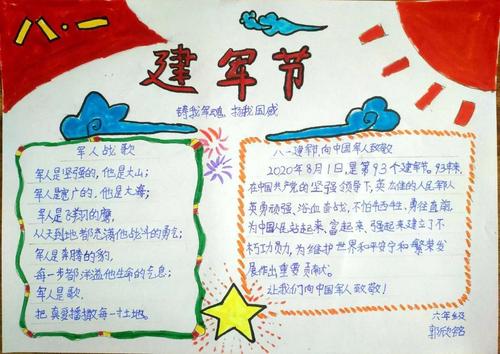 八·一
建军节
铸我军魂 扬我国威
军人战歌
军人是坚强的,他是大山;
军人是宽广的,他是大海;
军人是飞翔的鹰,
从天到地都充满他战斗的勇气;
军人是奔腾的豹,
每一步都洋溢他生命的气息;
军人是歌,
把真爱播撒每一寸土地。
八一建军节,向中国军人致敬
2020年8月1日,是第93个建军节。93年来,
在中国共产党的坚强领导下,英雄的人民军队
英勇顽强、浴血奋战,不怕牺牲,勇往直前,
为中国人民站起来、富起来、强起来建立了不
朽功勋,为维护世界和平安宁和繁荣发
展作出重要贡献。
让我们向中国军人致敬!
六年级